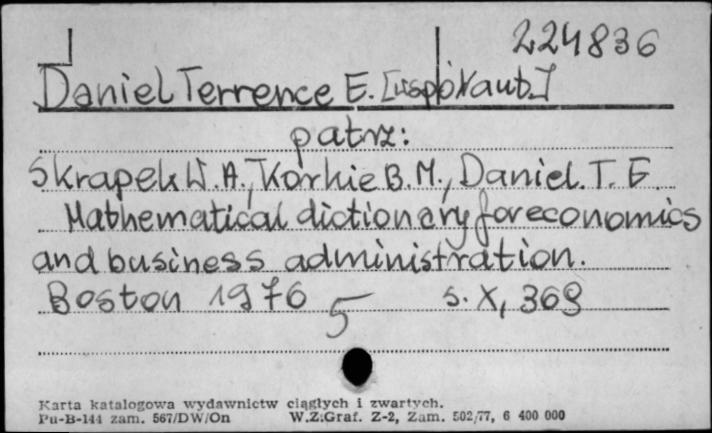 224836
Daniel Terrence E. [współaut.]
patrz:
Skrapek W. A., Korkie B. M., Daniel. T. E.
Mathematical dictionary for economics
and business administration.
Boston 1976 s. X, 369
5
Karta katalogowa wydawnictw ciągłych i zwartych.
Pu-B-144 zam. 567/DW/On W.Z.Graf. Z-2, Zam. 502/77, 6 400 000